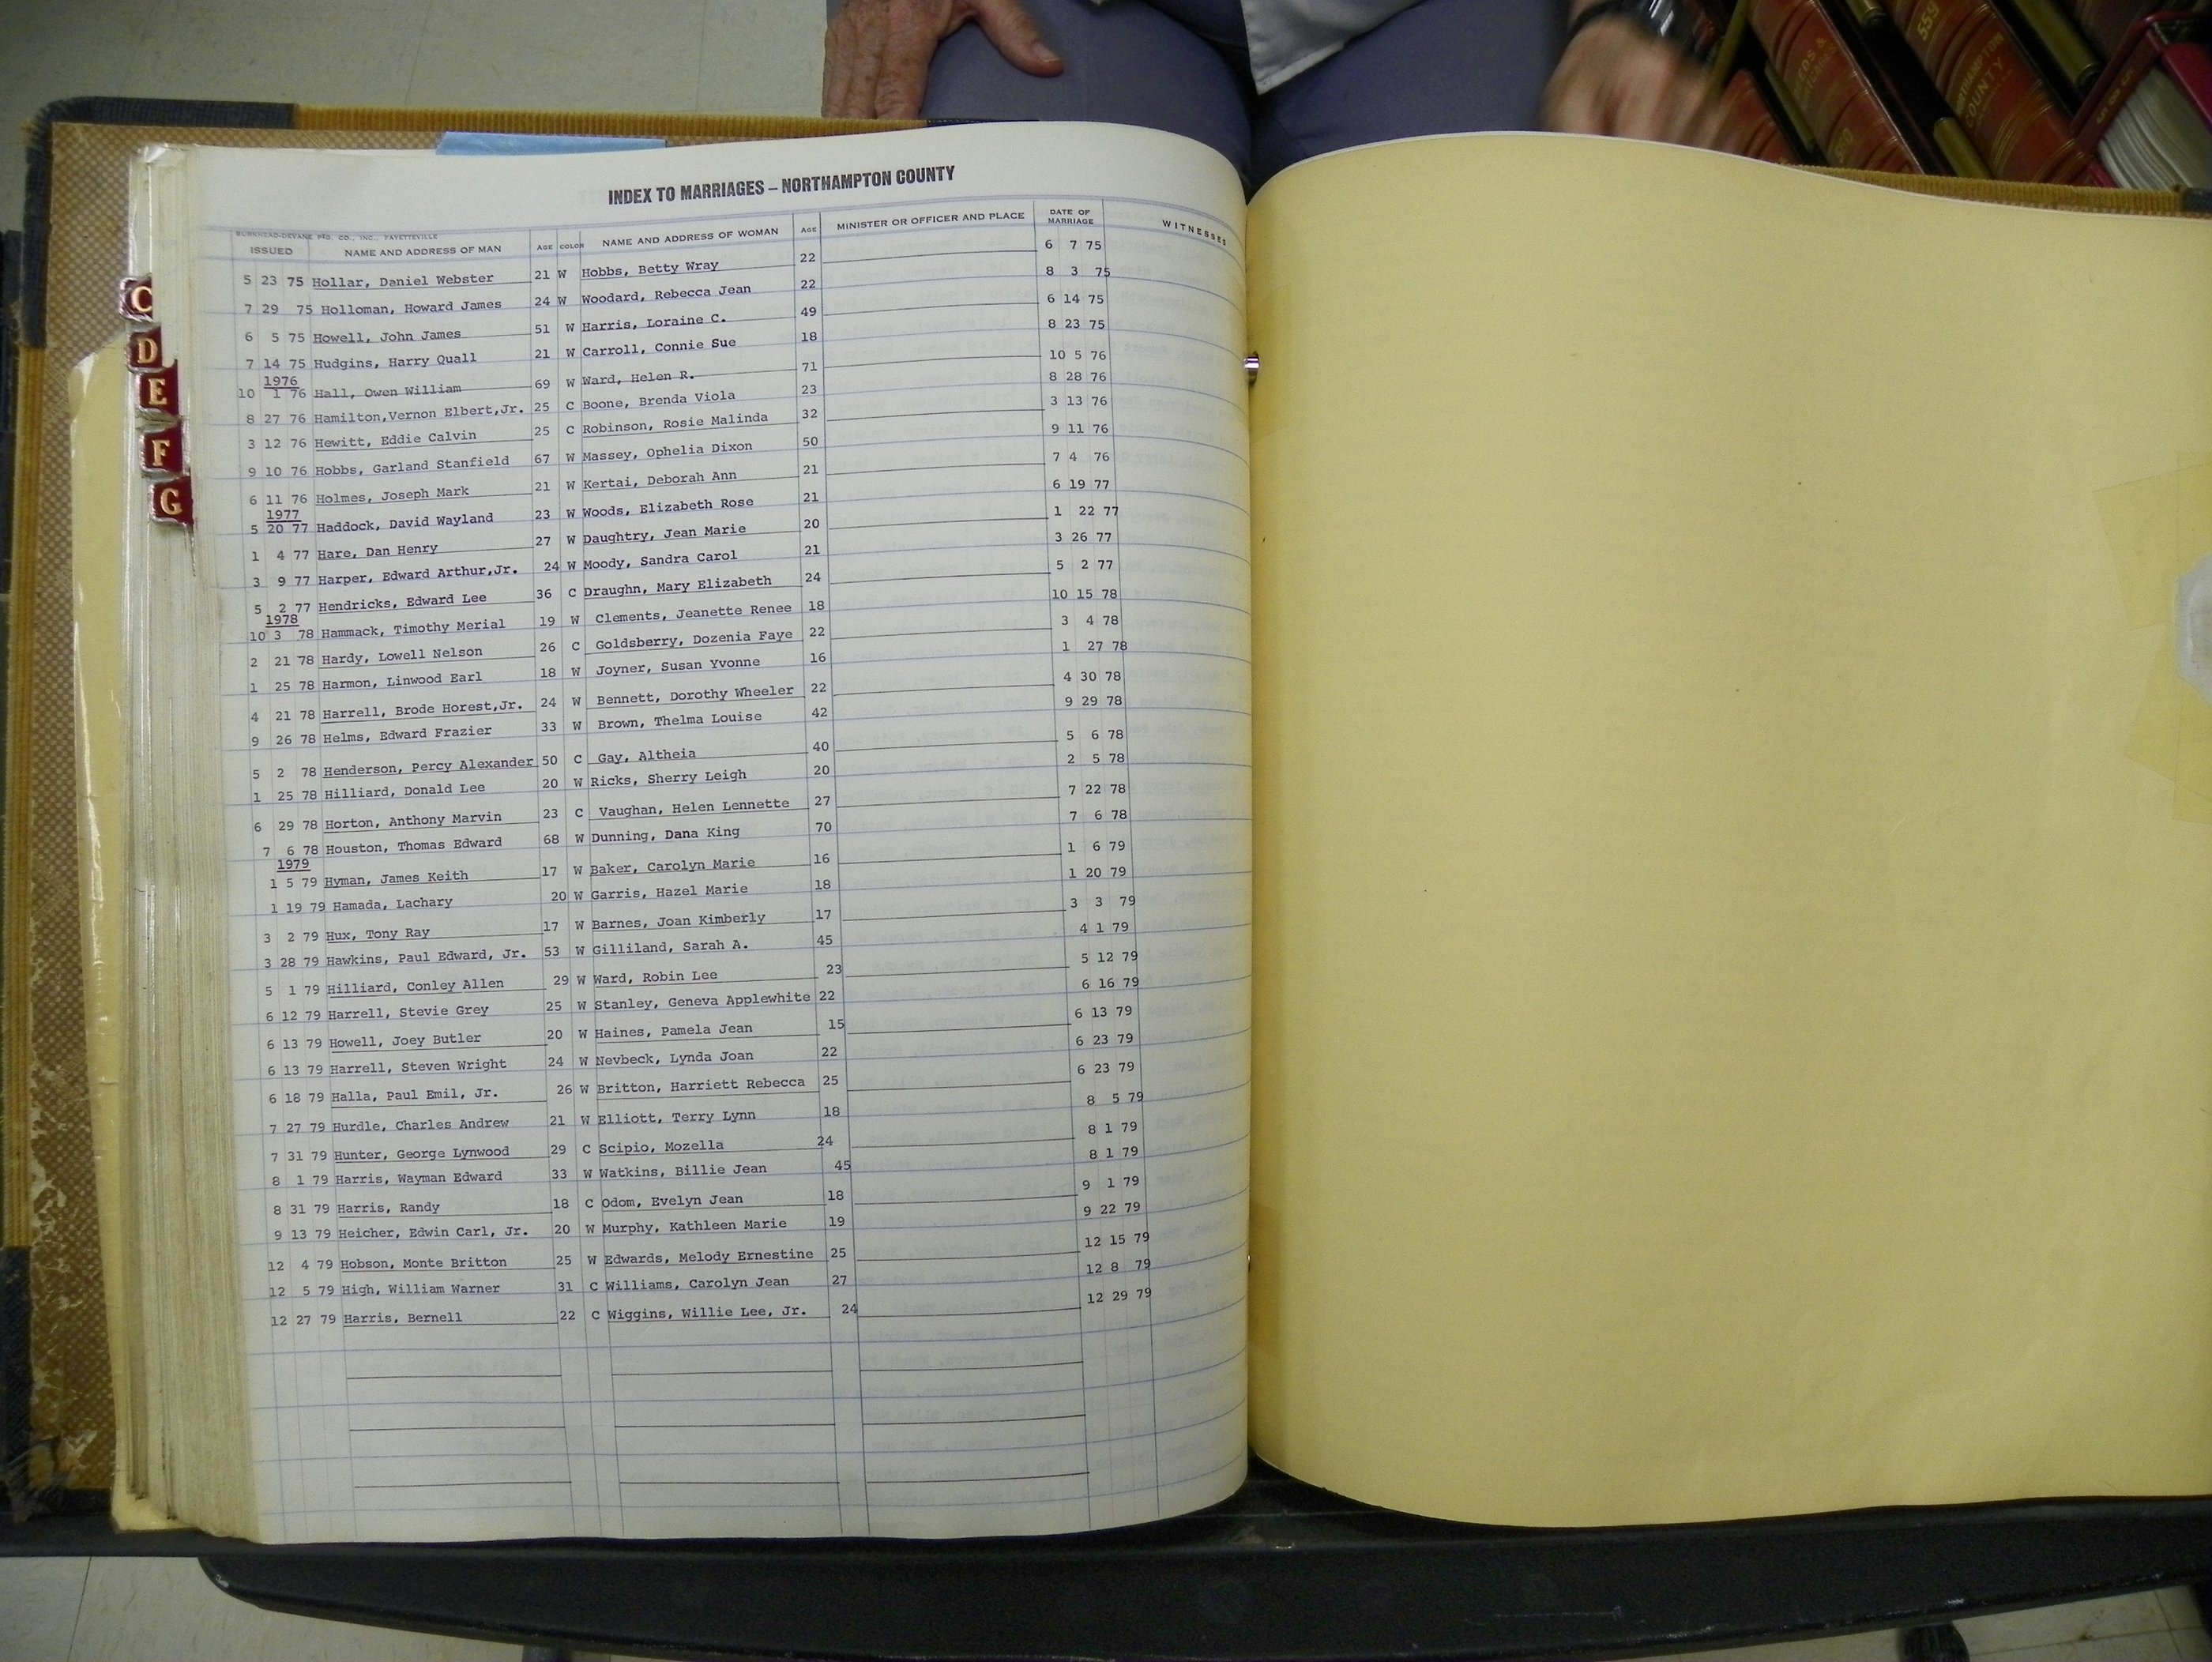 559
NORTHAMPTON
COUNTY
INDEX TO MARRIAGES – NORTHAMPTON COUNTY
BURKHEAD-DEVANE PTG. CO., INC., FAYETTEVILLE
ISSUED NAME AND ADDRESS OF MAN AGE COLOR NAME AND ADDRESS OF WOMAN AGE MINISTER OR OFFICER AND PLACE DATE OF MARRIAGE WITNESSES
5 23 75 Hollar, Daniel Webster 21 W Hobbs, Betty Wray 22 6 7 75
7 29 75 Holloman, Howard James 24 W Woodard, Rebecca Jean 22 8 3 75
6 5 75 Howell, John James 51 W Harris, Loraine C. 49 6 14 75
7 14 75 Hudgins, Harry Quall 21 W Carroll, Connie Sue 18 8 23 75
1976
10 1 76 Hall, Owen William 69 W Ward, Helen R. 71 10 5 76
8 27 76 Hamilton,Vernon Elbert,Jr. 25 C Boone, Brenda Viola 23 8 28 76
3 12 76 Hewitt, Eddie Calvin 25 C Robinson, Rosie Malinda 32 3 13 76
9 10 76 Hobbs, Garland Stanfield 67 W Massey, Ophelia Dixon 50 9 11 76
6 11 76 Holmes, Joseph Mark 21 W Kertai, Deborah Ann 21 7 4 76
1977
5 20 77 Haddock, David Wayland 23 W Woods, Elizabeth Rose 21 6 19 77
1 4 77 Hare, Dan Henry 27 W Daughtry, Jean Marie 20 1 22 77
3 9 77 Harper, Edward Arthur,Jr. 24 W Moody, Sandra Carol 21 3 26 77
5 2 77 Hendricks, Edward Lee 36 C Draughn, Mary Elizabeth 24 5 2 77
1978
10 3 78 Hammack, Timothy Merial 19 W Clements, Jeanette Renee 18 10 15 78
2 21 78 Hardy, Lowell Nelson 26 C Goldsberry, Dozenia Faye 22 3 4 78
1 25 78 Harmon, Linwood Earl 18 W Joyner, Susan Yvonne 16 1 27 78
4 21 78 Harrell, Brode Horest,Jr. 24 W Bennett, Dorothy Wheeler 22 4 30 78
9 26 78 Helms, Edward Frazier 33 W Brown, Thelma Louise 42 9 29 78
5 2 78 Henderson, Percy Alexander 50 C Gay, Altheia 40 5 6 78
1 25 78 Hilliard, Donald Lee 20 W Ricks, Sherry Leigh 20 2 5 78
6 29 78 Horton, Anthony Marvin 23 C Vaughan, Helen Lennette 27 7 22 78
7 6 78 Houston, Thomas Edward 68 W Dunning, Dana King 70 7 6 78
1979
1 5 79 Hyman, James Keith 17 W Baker, Carolyn Marie 16 1 6 79
1 19 79 Hamada, Lachary 20 W Garris, Hazel Marie 18 1 20 79
3 2 79 Hux, Tony Ray 17 W Barnes, Joan Kimberly 17 3 3 79
3 28 79 Hawkins, Paul Edward, Jr. 53 W Gilliland, Sarah A. 45 4 1 79
5 1 79 Hilliard, Conley Allen 29 W Ward, Robin Lee 23 5 12 79
6 12 79 Harrell, Stevie Grey 25 W Stanley, Geneva Applewhite 22 6 16 79
6 13 79 Howell, Joey Butler 20 W Haines, Pamela Jean 15 6 13 79
6 13 79 Harrell, Steven Wright 24 W Nevbeck, Lynda Joan 22 6 23 79
6 18 79 Halla, Paul Emil, Jr. 26 W Britton, Harriett Rebecca 25 6 23 79
7 27 79 Hurdle, Charles Andrew 21 W Elliott, Terry Lynn 18 8 5 79
7 31 79 Hunter, George Lynwood 29 C Scipio, Mozella 24 8 1 79
8 1 79 Harris, Wayman Edward 33 W Watkins, Billie Jean 45 8 1 79
8 31 79 Harris, Randy 18 C Odom, Evelyn Jean 18 9 1 79
9 13 79 Heicher, Edwin Carl, Jr. 20 W Murphy, Kathleen Marie 19 9 22 79
12 4 79 Hobson, Monte Britton 25 W Edwards, Melody Ernestine 25 12 15 79
12 5 79 High, William Warner 31 C Williams, Carolyn Jean 27 12 8 79
12 27 79 Harris, Bernell 22 C Wiggins, Willie Lee, Jr. 24 12 29 79
C
D
E
F
G